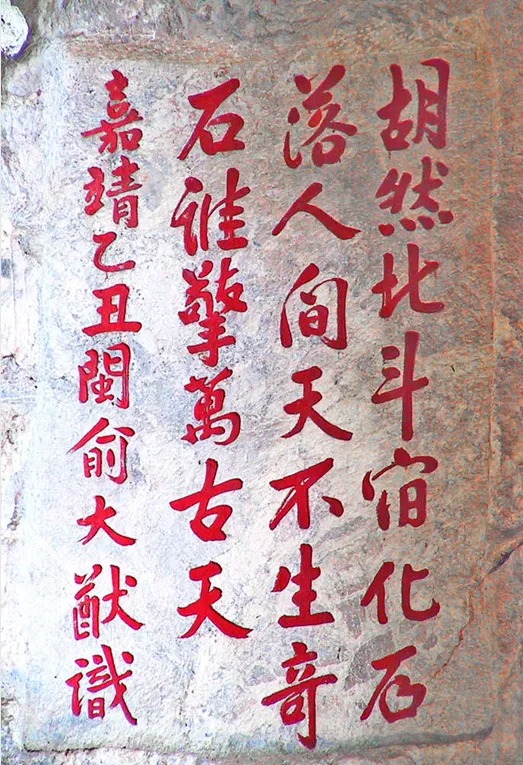 胡然北斗宿化石
落人间天不生奇
石谁擎萬古天
嘉靖乙丑閩俞大猷識